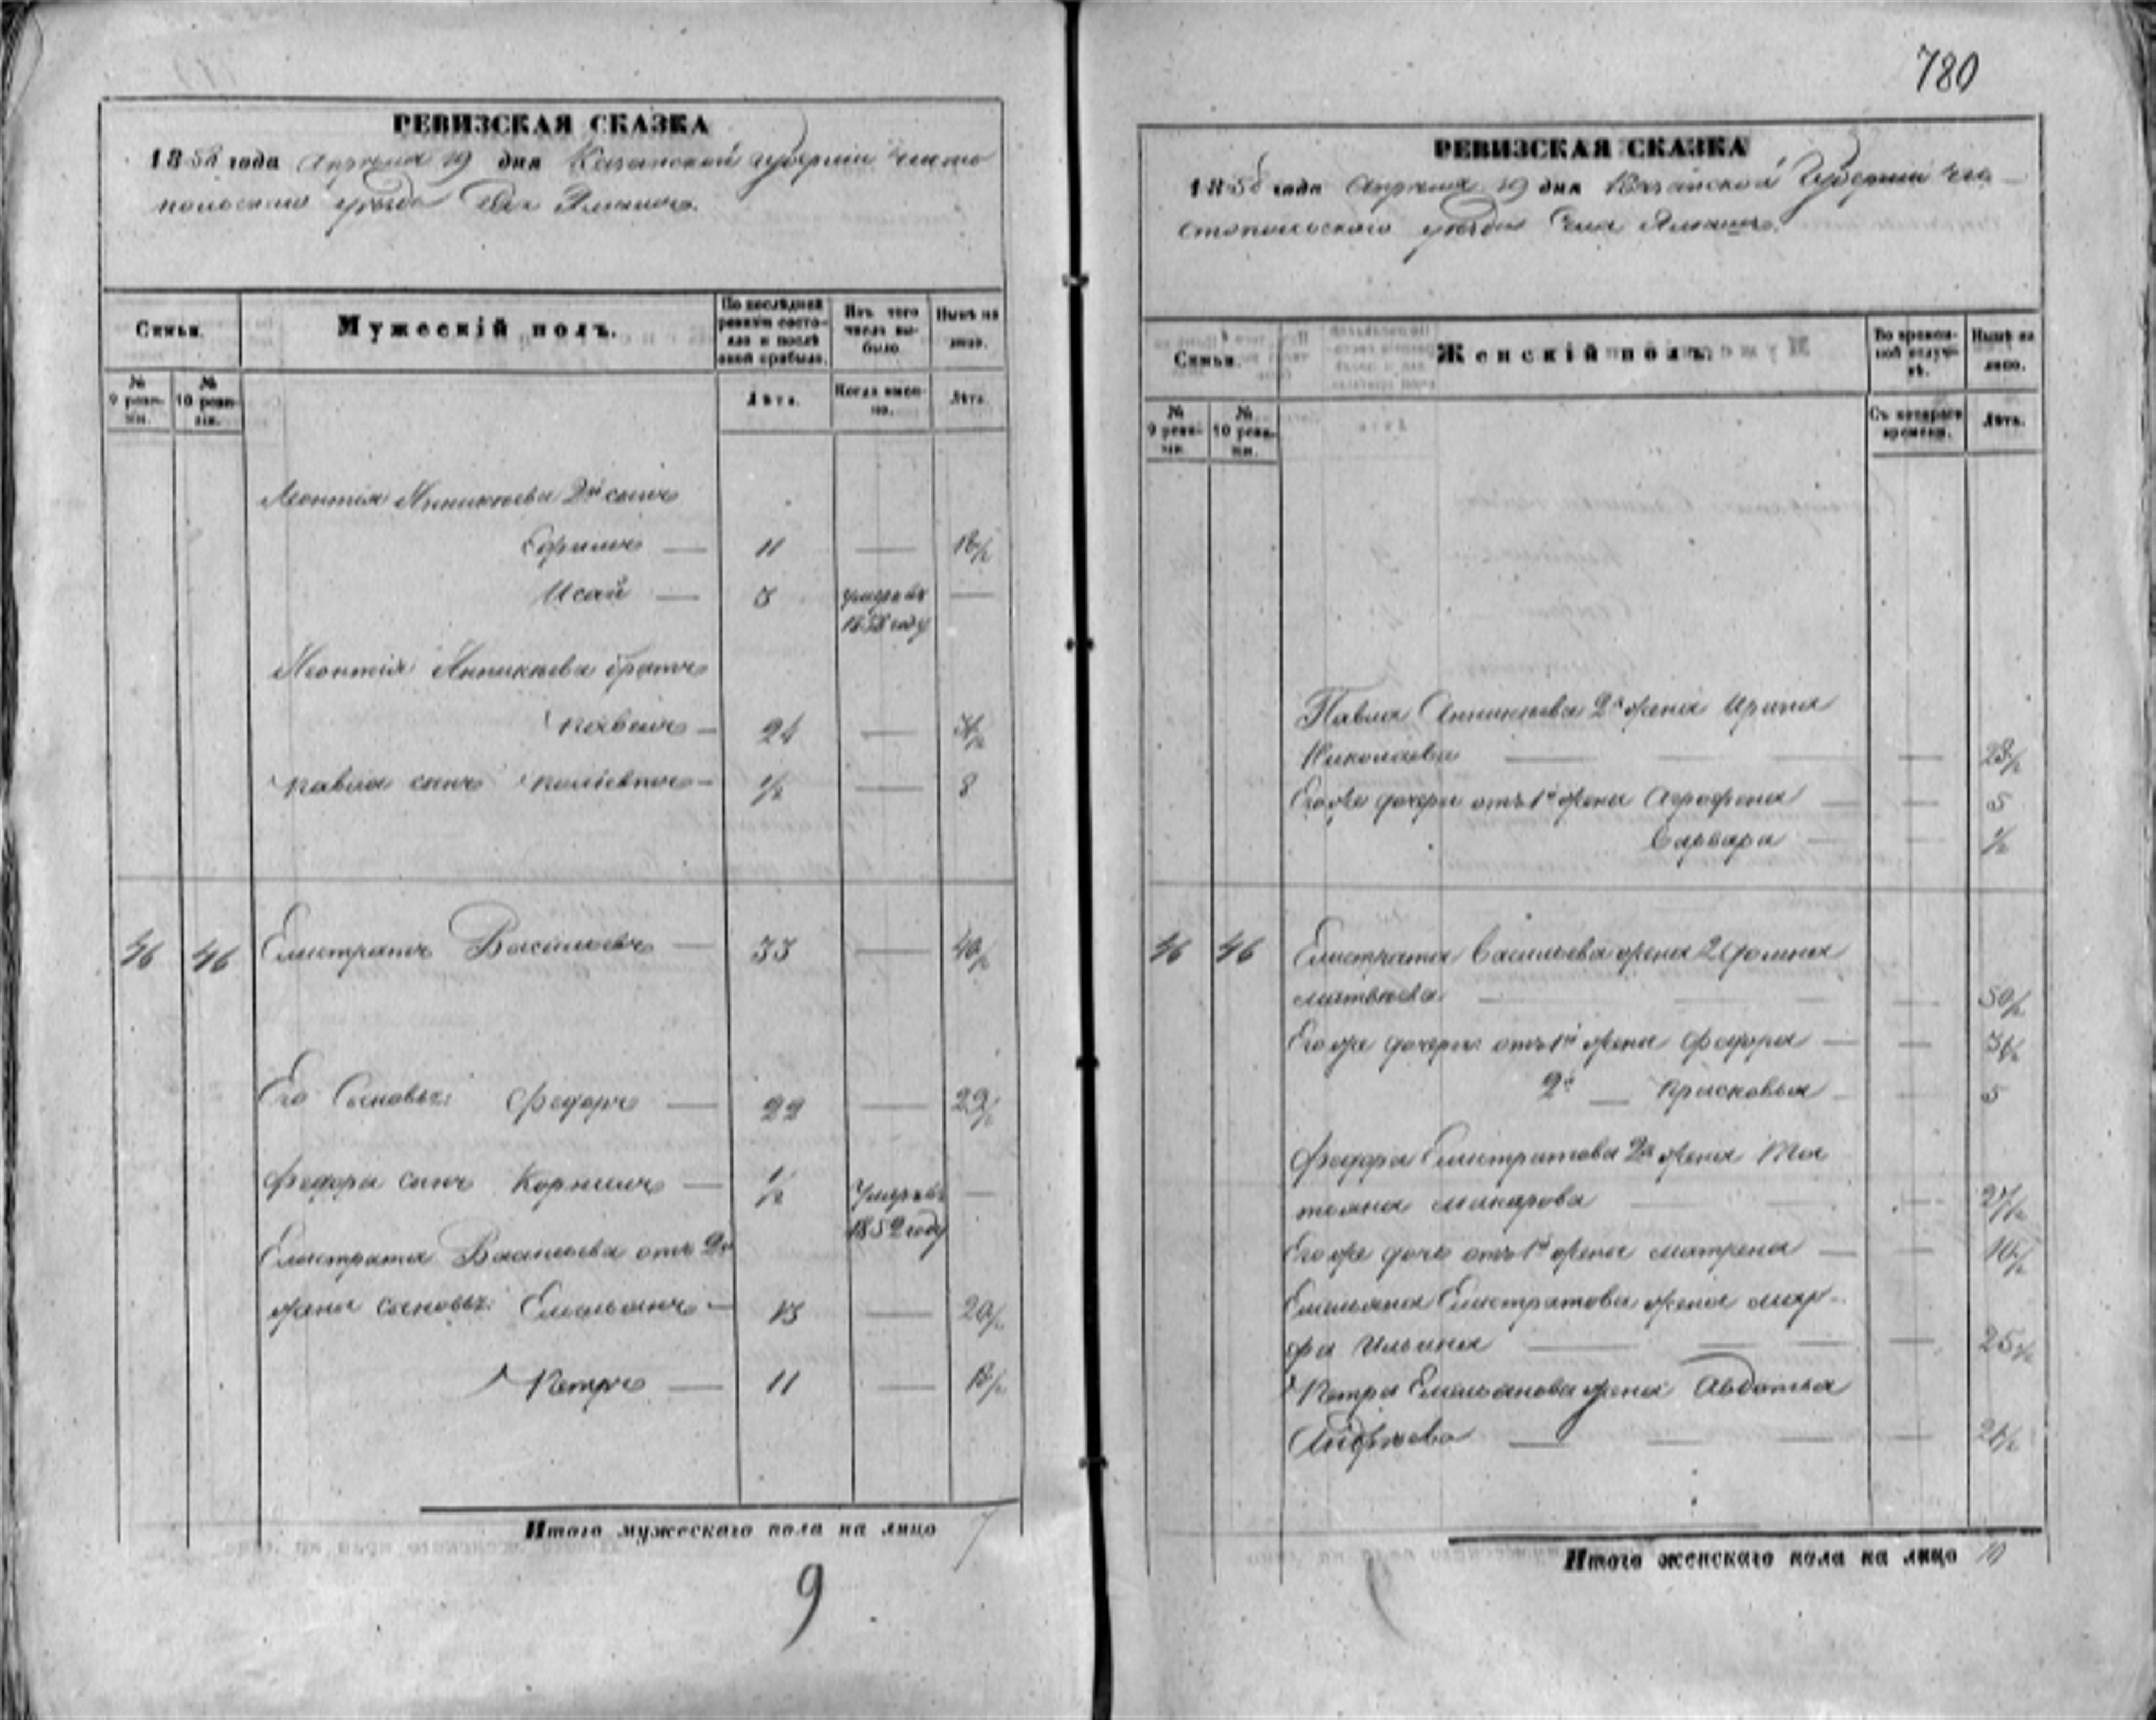 РЕВИЗСКАЯ СКАЗКА
1858 года Апреля 19 дня Казанской губернии Чисто
польскаго уѣзда Села
Семьи.
Мужескій полъ.
По послѣдней ревизіи состояло и послѣ оной прибыло.
Изъ того числа выбыло.
Нынѣ на лицо.
№ 9 ревизіи.
№ 10 ревизіи.
Лѣта.
Когда именно.
Лѣта.
Леонтія Аникиева 2й сынъ
Ефимъ — 11 —
Исай — 3 умеръ въ —
1858 году
Леонтія Аникиева братъ
Павелъ — 24 —
Павла сынъ — ½ — 8
46 46 Елистратъ Васильевъ — 33 —
Его Сыновья: Федоръ — 22 —
Федора сынъ Корнилъ — ½ Умеръ въ —
1852 году
Елистрата Васильева отъ 2й
жены сыновья: Емельянъ — 13 —
Петръ — 11 —
Итого мужескаго пола на лицо 7
9
780
РЕВИЗСКАЯ СКАЗКА
1858 года Апреля 19 дня Казанской Губерніи Чи-
стопольскаго уѣзда Села
Семьи.
Женскій полъ.
Во временной отлучкѣ.
Нынѣ на лицо.
№ 9 ревизіи.
№ 10 ревизіи.
Съ котораго времени.
Лѣта.
Павла Аникиева 2я жена Ирина
Николаева —
Его же дочери отъ 1й жены Агрофена — 5
Варвара — ½
46 46 Елистрата Васильева жена 2я Домна
Матвѣева — 50½
Его же дочери: отъ 1й жены Федора —
2й — Прасковья — 5
Федора Елистратова 2я жена Та
тьяна Макарова — 27½
Его же дочь отъ 1й жены Матрена — 10½
Емельяна Елистратова жена Мар-
фа Ильина — 25½
Петра Емельянова жена Авдотья
Андреева — 21½
Итого женскаго пола на лицо 10